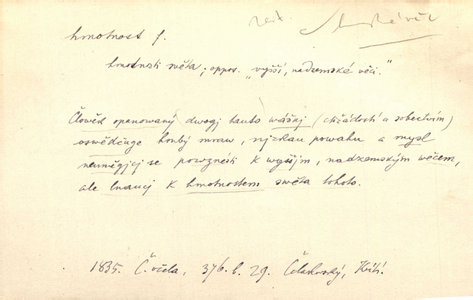 hmotnost f.
hmotnosti světa; oppos. „vyšší, nadzemské věci.“
Člověk opanowaný dwogj tauto wášnj (ctižádostí a sobectwím)
oswědčuge hrubý mraw, njzkau powahu a mysl
neumějgcj se powznésti k wyššjm, nadzemským wěcem,
ale lnaucj k hmotnostem swěta tohoto.
1835. Č. včela, 376. b. 29. Čelakovský,